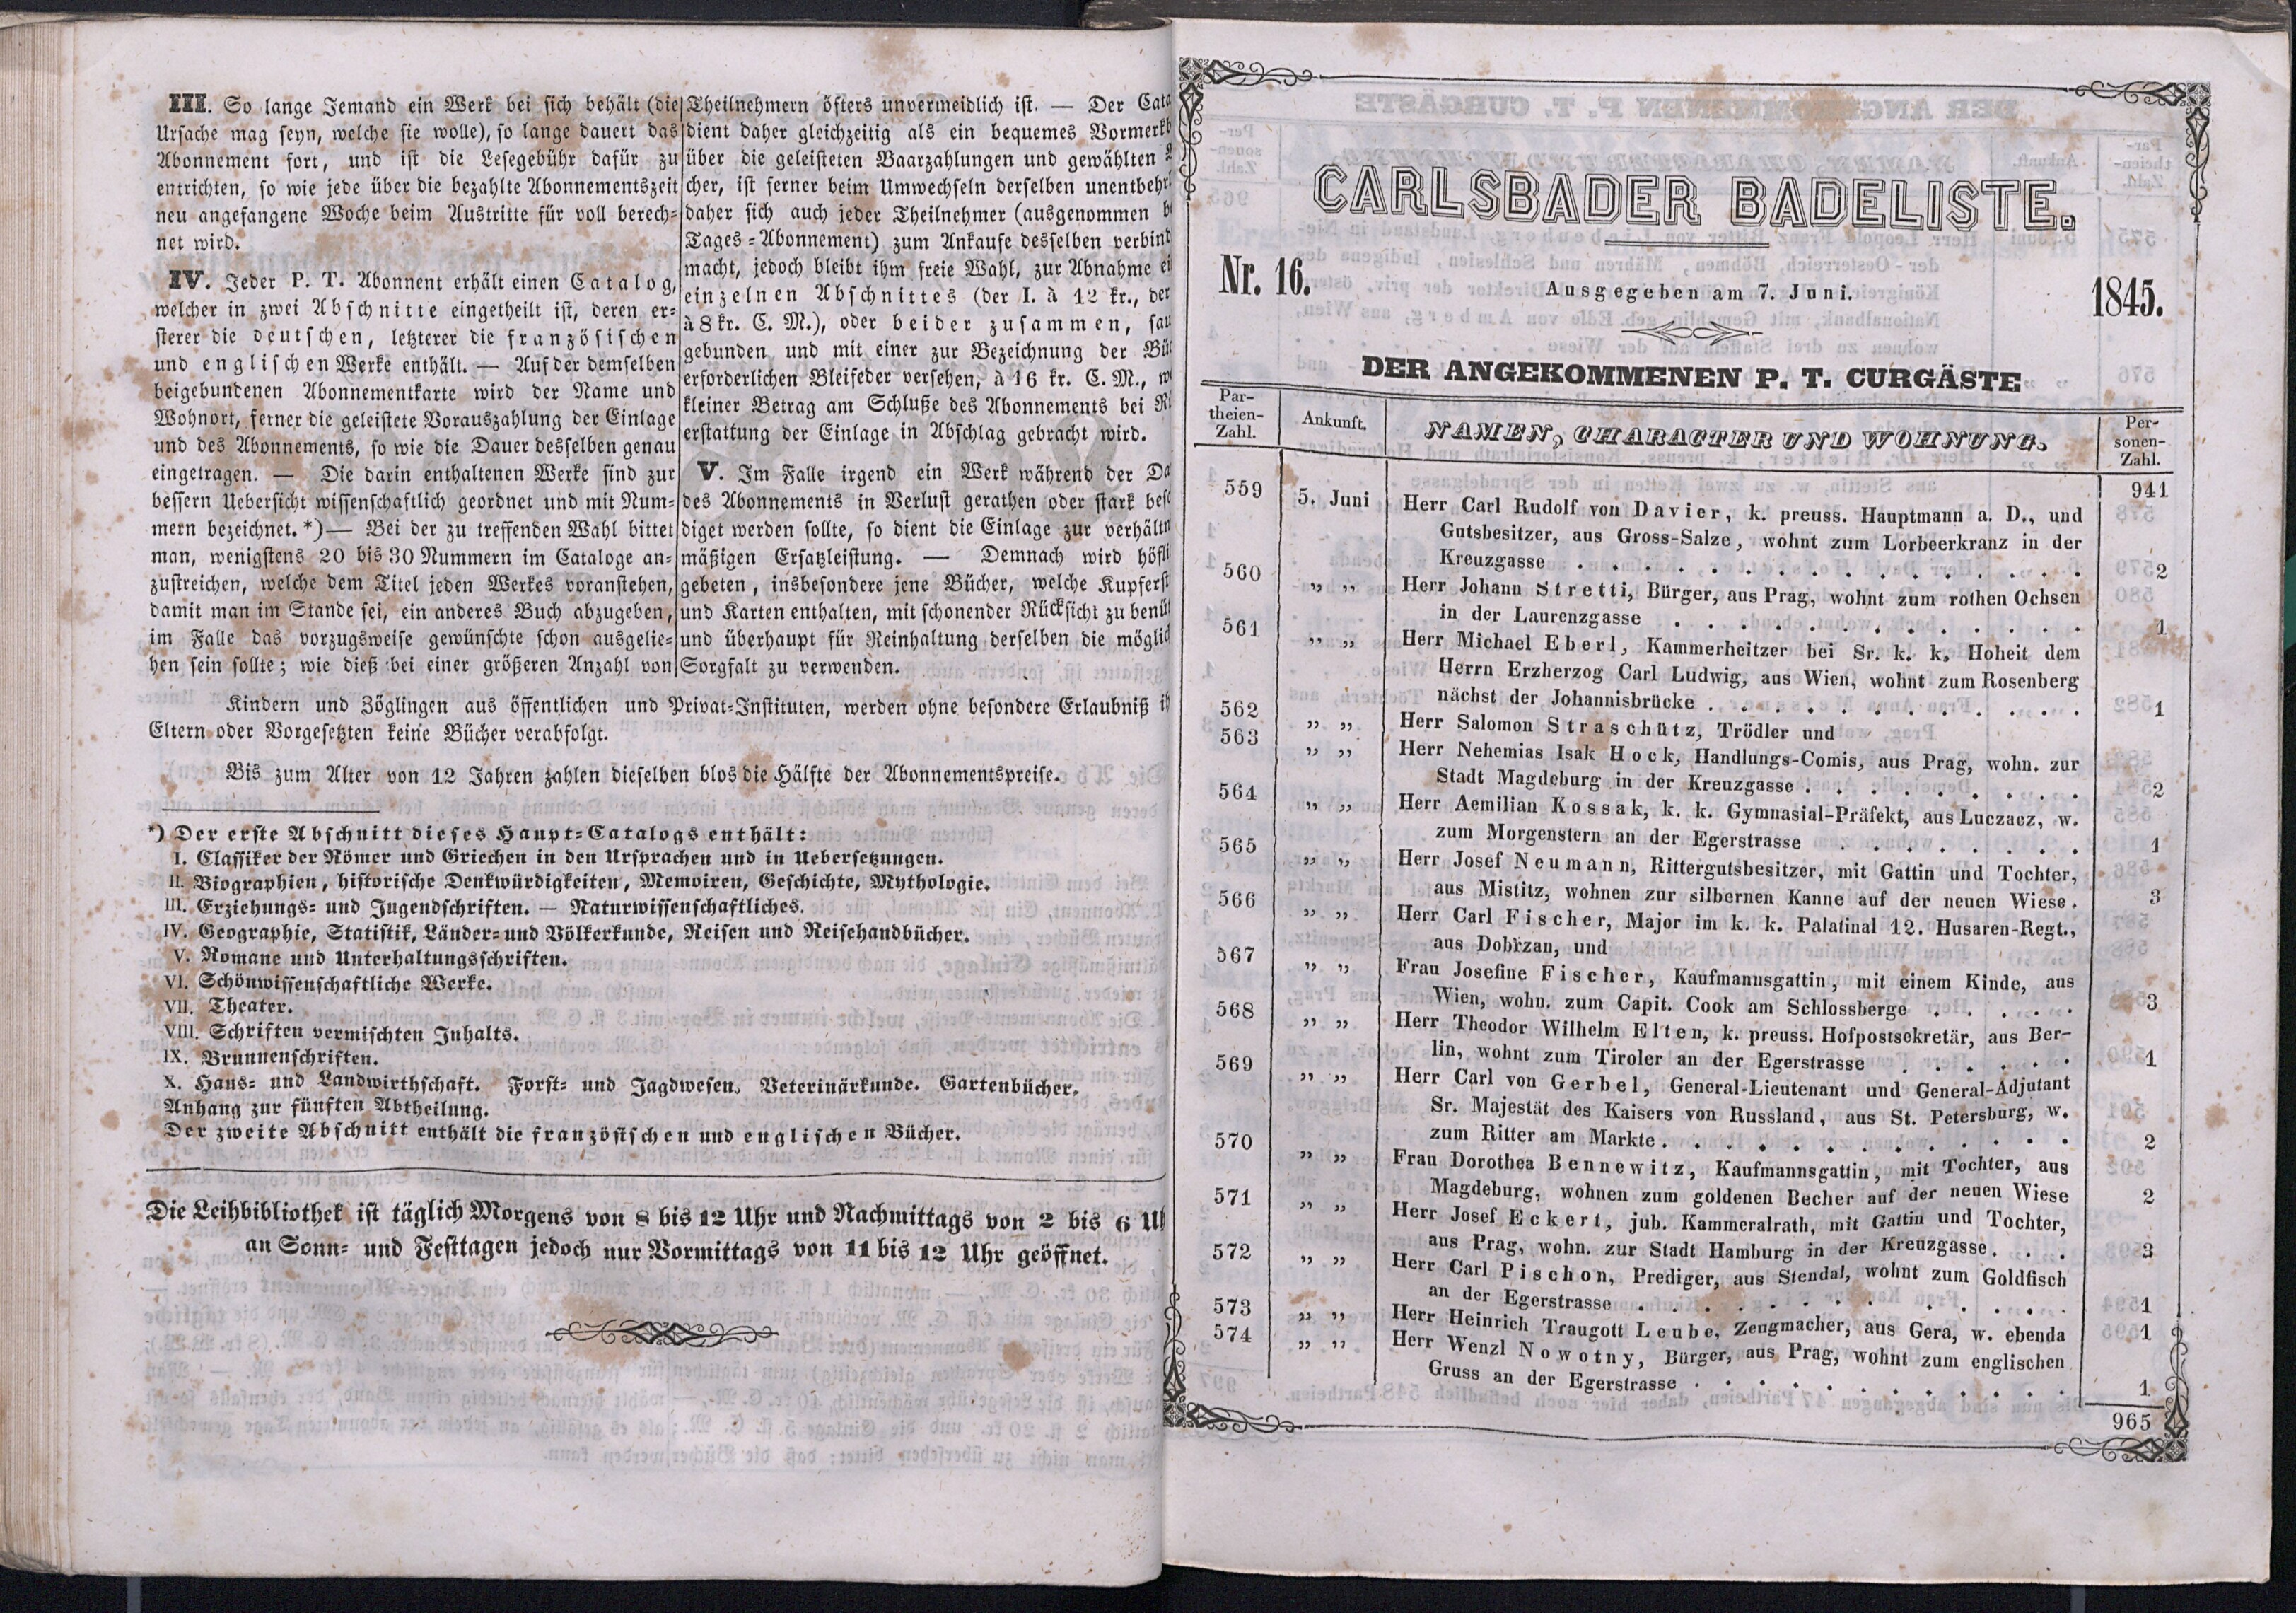 III. So lange Jemand ein Werk bei sich behält (die
Ursache mag seyn, welche sie wolle), so lange dauert das
Abonnement fort, und ist die Lesegebühr dafür zu
entrichten, so wie jede über die bezahlte Abonnementszeit
neu angefangene Woche beim Austritte für voll berech=
net wird.
IV. Jeder P. T. Abonnent erhält einen Catalog,
welcher in zwei Abschnitte eingetheilt ist, deren er=
sterer die deutschen, letzterer die französischen
und englischen Werke enthält. — Auf der demselben
beigebundenen Abonnementkarte wird der Name und
Wohnort, ferner die geleistete Vorauszahlung der Einlage
und des Abonnements, so wie die Dauer desselben genau
eingetragen. — Die darin enthaltenen Werke sind zur
bessern Uebersicht wissenschaftlich geordnet und mit Num=
mern bezeichnet. *) — Bei der zu treffenden Wahl bittet
man, wenigstens 20 bis 30 Nummern im Cataloge an=
zustreichen, welche dem Titel jeden Werkes voranstehen,
damit man im Stande sei, ein anderes Buch abzugeben,
im Falle das vorzugsweise gewünschte schon ausgelie=
hen sein sollte; wie dieß bei einer größeren Anzahl von
Theilnehmern öfters unvermeidlich ist. — Der Cata
dient daher gleichzeitig als ein bequemes Vormerkb
über die geleisteten Baarzahlungen und gewählten
cher, ist ferner beim Umwechseln derselben unentbehrl
daher sich auch jeder Theilnehmer (ausgenommen b
Tages=Abonnement) zum Ankaufe desselben verbind
macht, jedoch bleibt ihm freie Wahl, zur Abnahme ei
einzelnen Abschnittes (der I. à 12 kr., der
à 8 kr. C. M.), oder beider zusammen, sau
gebunden und mit einer zur Bezeichnung der Bü
erforderlichen Bleifeder versehen, à 16 kr. C. M., w
kleiner Betrag am Schluße des Abonnements bei R
erstattung der Einlage in Abschlag gebracht wird.
V. Im Falle irgend ein Werk während der Da
des Abonnements in Verlust gerathen oder stark besc
diget werden sollte, so dient die Einlage zur verhältn
mäßigen Ersatzleistung. — Demnach wird höfli
gebeten, insbesondere jene Bücher, welche Kupferst
und Karten enthalten, mit schonender Rücksicht zu benü
und überhaupt für Reinhaltung derselben die möglic
Sorgfalt zu verwenden.
Kindern und Zöglingen aus öffentlichen und Privat=Instituten, werden ohne besondere Erlaubniß ih
Eltern oder Vorgesetzten keine Bücher verabfolgt.
Bis zum Alter von 12 Jahren zahlen dieselben blos die Hälfte der Abonnementspreise.
*) Der erste Abschnitt dieses Haupt=Catalogs enthält:
I. Classiker der Römer und Griechen in den Ursprachen und in Uebersetzungen.
II. Biographien, historische Denkwürdigkeiten, Memoiren, Geschichte, Mythologie.
III. Erziehungs= und Jugendschriften. — Naturwissenschaftliches.
IV. Geographie, Statistik, Länder= und Völkerkunde, Reisen und Reisehandbücher.
V. Romane und Unterhaltungsschriften.
VI. Schönwissenschaftliche Werke.
VII. Theater.
VIII. Schriften vermischten Inhalts.
IX. Brunnenschriften.
X. Haus= und Landwirthschaft. Forst= und Jagdwesen. Veterinärkunde. Gartenbücher.
Anhang zur fünften Abtheilung.
Der zweite Abschnitt enthält die französischen und englischen Bücher.
Die Leihbibliothek ist täglich Morgens von 8 bis 12 Uhr und Nachmittags von 2 bis 6 Uh
an Sonn= und Festtagen jedoch nur Vormittags von 11 bis 12 Uhr geöffnet.
CARLSBADER BADELISTE.
Nr. 16. Ausgegeben am 7. Juni. 1845.
DER ANGEKOMMENEN P. T. CURGÄSTE
Par-
theien-
Zahl.
Ankunft.
NAMEN, CHARACTER UND WOHNUNG.
Per-
sonen-
Zahl.
941
559 5. Juni Herr Carl Rudolf von Davier, k. preuss. Hauptmann a. D., und
Gutsbesitzer, aus Gross-Salze, wohnt zum Lorbeerkranz in der
Kreuzgasse . . . . . . . . . . . . . . . 2
560 „ „ Herr Johann Stretti, Bürger, aus Prag, wohnt zum rothen Ochsen
in der Laurenzgasse . . . . . . . . . . . . 1
561 „ „ Herr Michael Eberl, Kammerheitzer bei Sr. k. k. Hoheit dem
Herrn Erzherzog Carl Ludwig, aus Wien, wohnt zum Rosenberg
nächst der Johannisbrücke . . . . . . . . . . . 1
562 „ „ Herr Salomon Straschütz, Trödler und
563 „ „ Herr Nehemias Isak Hock, Handlungs-Comis, aus Prag, wohn. zur
Stadt Magdeburg in der Kreuzgasse . . . . . . . . 2
564 „ „ Herr Aemilian Kossak, k. k. Gymnasial-Präfekt, aus Luczacz, w.
zum Morgenstern an der Egerstrasse . . . . . . . . 1
565 „ „ Herr Josef Neumann, Rittergutsbesitzer, mit Gattin und Tochter,
aus Mistitz, wohnen zur silbernen Kanne auf der neuen Wiese . 3
566 „ „ Herr Carl Fischer, Major im k. k. Palatinal 12. Husaren-Regt.,
aus Dobřzan, und
567 „ „ Frau Josefine Fischer, Kaufmannsgattin, mit einem Kinde, aus
Wien, wohn. zum Capit. Cook am Schlossberge . . . . . 3
568 „ „ Herr Theodor Wilhelm Elten, k. preuss. Hofpostsekretär, aus Ber-
lin, wohnt zum Tiroler an der Egerstrasse . . . . . . 1
569 „ „ Herr Carl von Gerbel, General-Lieutenant und General-Adjutant
Sr. Majestät des Kaisers von Russland, aus St. Petersburg, w.
zum Ritter am Markte . . . . . . . . . . . . 2
570 „ „ Frau Dorothea Bennewitz, Kaufmannsgattin, mit Tochter, aus
Magdeburg, wohnen zum goldenen Becher auf der neuen Wiese 2
571 „ „ Herr Josef Eckert, jub. Kammeralrath, mit Gattin und Tochter,
aus Prag, wohn. zur Stadt Hamburg in der Kreuzgasse . . . 3
572 „ „ Herr Carl Pischon, Prediger, aus Stendal, wohnt zum Goldfisch
an der Egerstrasse . . . . . . . . . . . . 1
573 „ „ Herr Heinrich Traugott Leube, Zeugmacher, aus Gera, w. ebenda 1
574 „ „ Herr Wenzl Nowotny, Bürger, aus Prag, wohnt zum englischen
Gruss an der Egerstrasse . . . . . . . . . . . 1
965